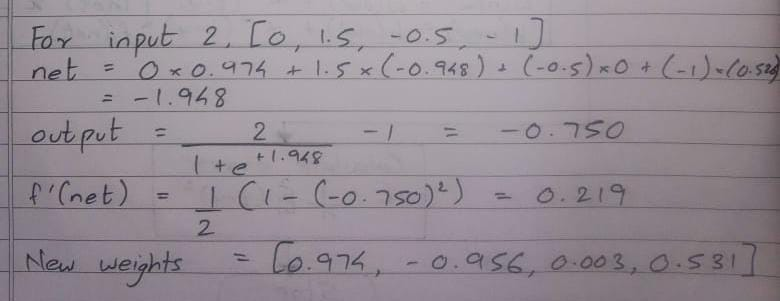 For input 2, [0, 1.5, -0.5, -1]
net = 0 × 0.974 + 1.5 × (-0.948) + (-0.5) × 0 + (-1) × (0.526)
= -1.948
output = 2 / 1 + e^+1.948 - 1 = -0.750
f'(net) = 1/2 (1 - (-0.750)²) = 0.219
New weights = [0.974, -0.956, 0.003, 0.531]